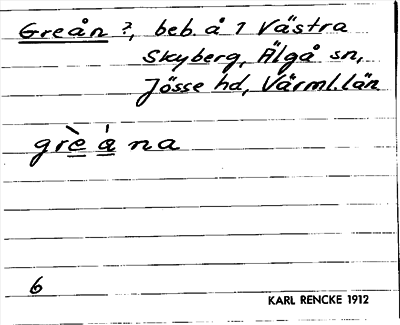 Greån ?, beb. å 1 Västra
Skyberg, Älgå sn,
Jösse hd, Värml. län
grè ȧ na
6
KARL RENCKE 1912